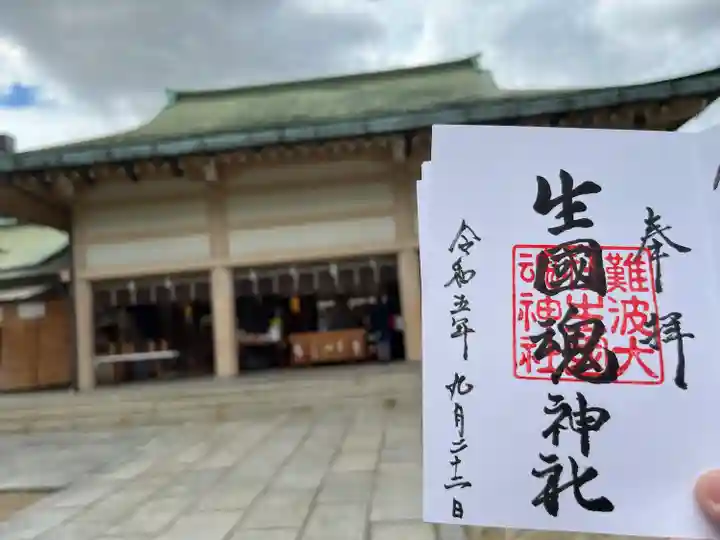 奉拝
生國魂神社
難波大
社生國
魂神社
令和五年 九月二十二日